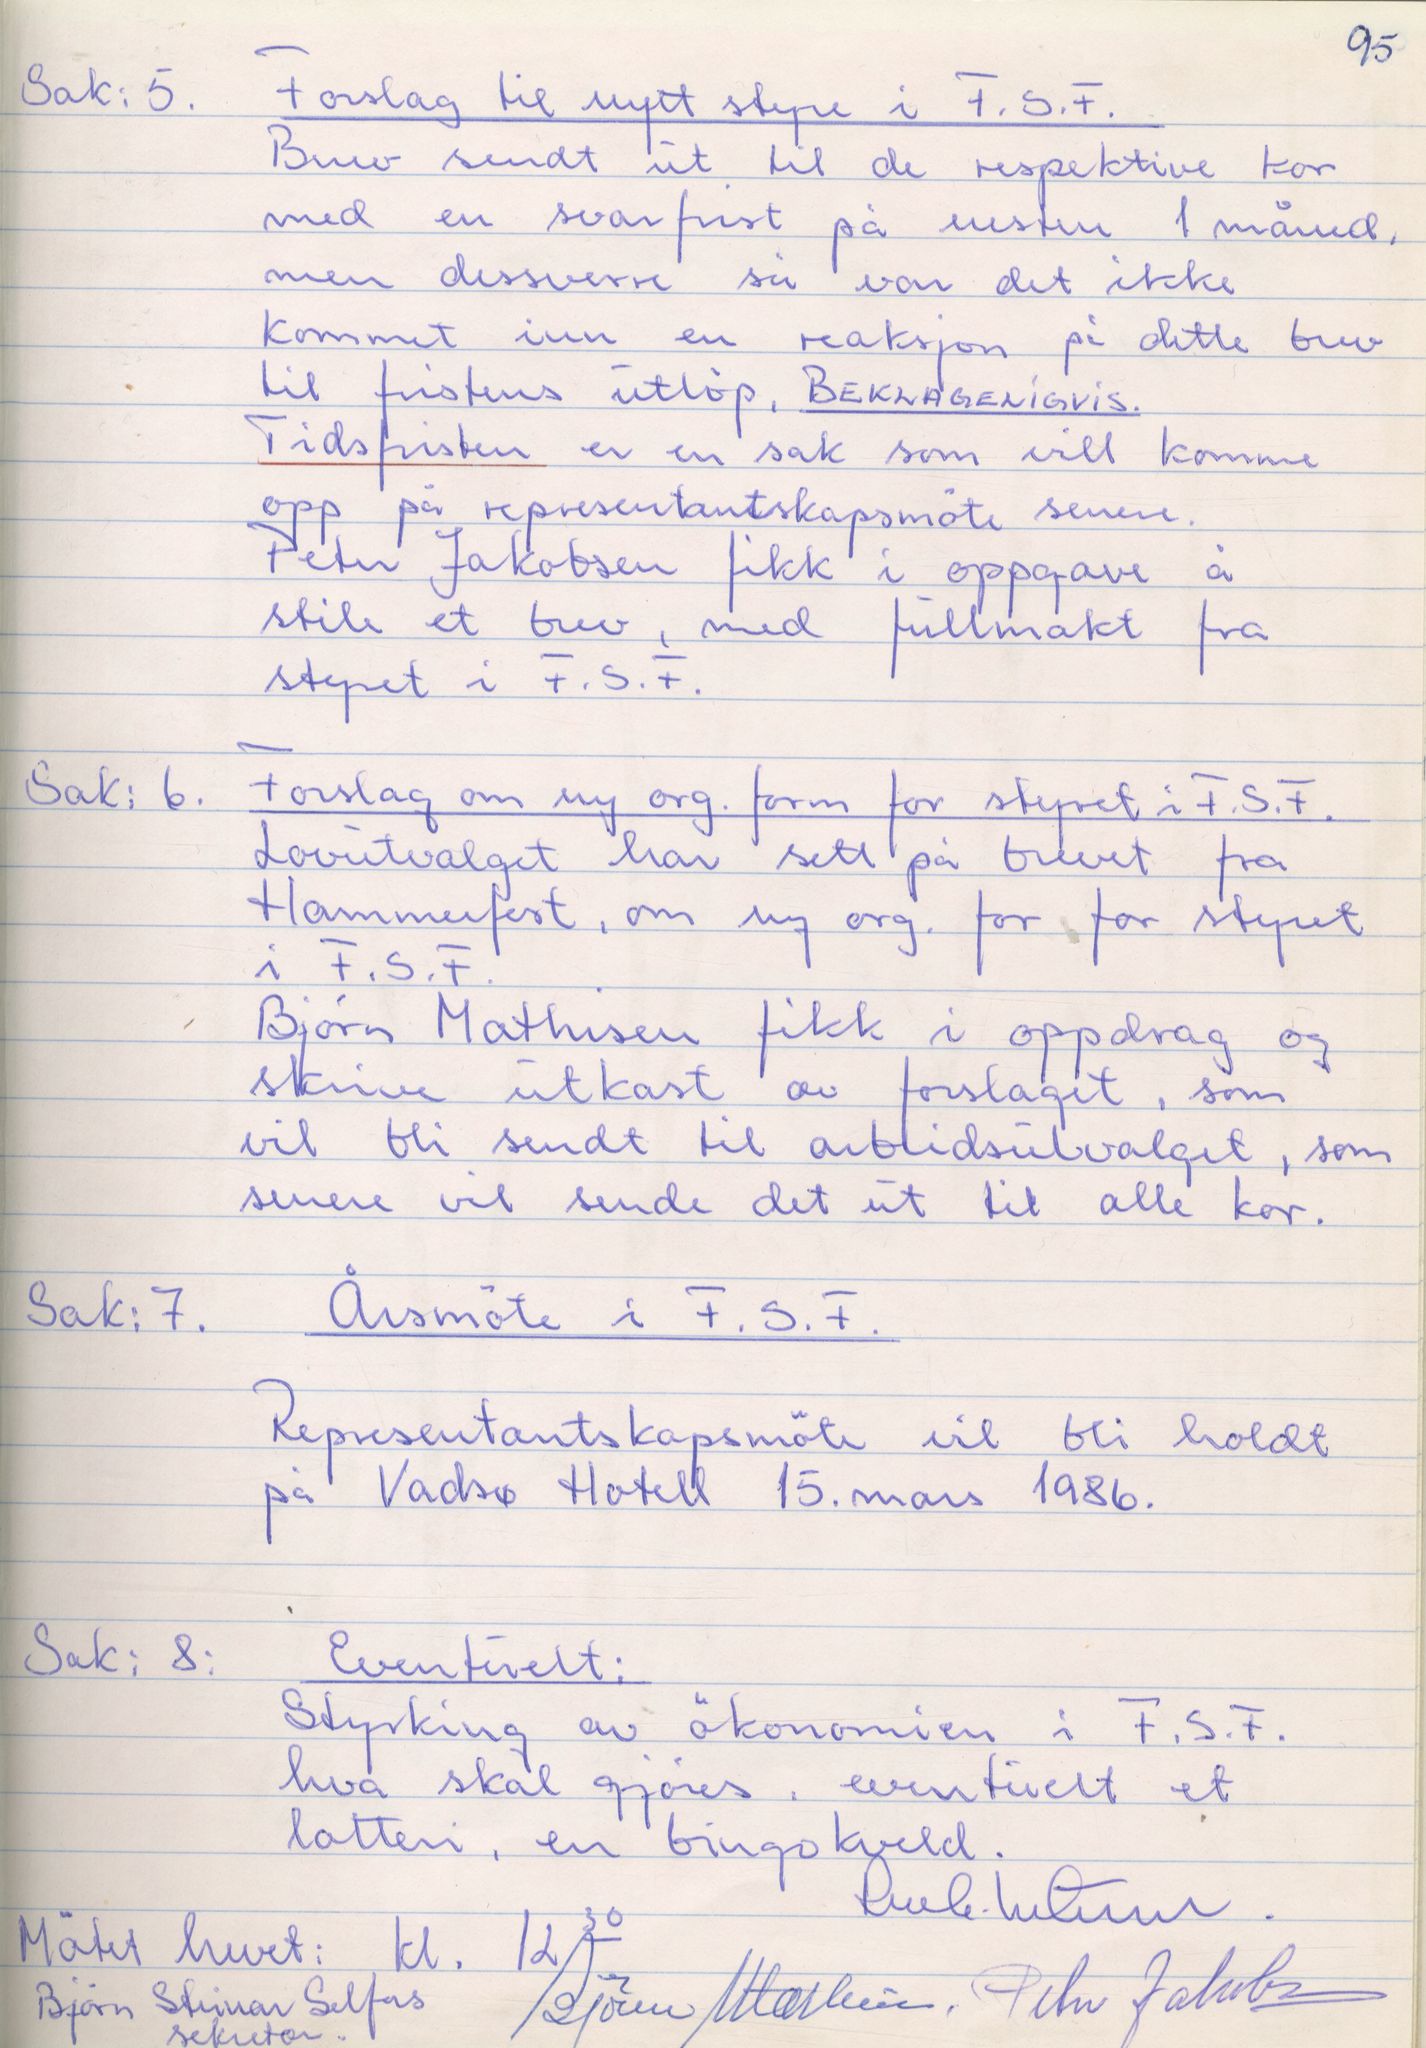 95
Sak: 5. Forslag til nytt styre i F.S.F.
Brev sendt ut til de respektive kor
med en svarfrist på nesten 1 måned,
men dessverre så var det ikke
kommet inn en reaksjon på dette brev
til fristens utløp, BEKLAGELIGVIS.
Tidsfristen er en sak som vill komme
opp på representantskapsmöte senere.
Peter Jakobsen fikk i oppgave å
stile et brev, med fullmakt fra
styret i F.S.F.
Sak: 6. Forslag om ny org. form for styret i F.S.F.
Lovutvalget har sett på brevet fra
Hammerfest, om ny org. for for styret
i F.S.F.
Björn Mathisen fikk i oppdrag og
skrive utkast av forslaget, som
vil bli sendt til arbeidsutvalget, som
senere vil sende det ut til alle kor.
Sak: 7. Årsmöte i F.S.F.
Representantskapsmöte vil bli holdt
på Vadsø Hotell 15. mars 1986.
Sak: 8: Eventuelt:
Styrking av ökonomien i F.S.F.
hva skal gjöres, eventuelt et
lotteri, en bingokveld.
Mötet hevet: kl. 12 30
Björn Steinar Selfors Björn Mathisen. Peter Jakobsen
sekretær.